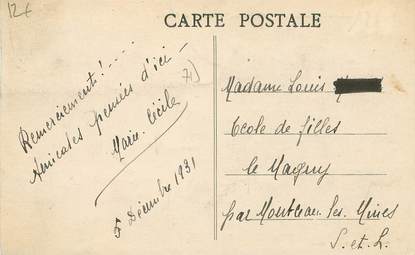 12€
CARTE POSTALE
Remerciement! ----
Amicales pensées d'ici -
Marie. Cécile
71)
5 Décembre 1931
Madame Louis
Ecole de filles
le Magny
par Montceau les Mines
S. et. L.